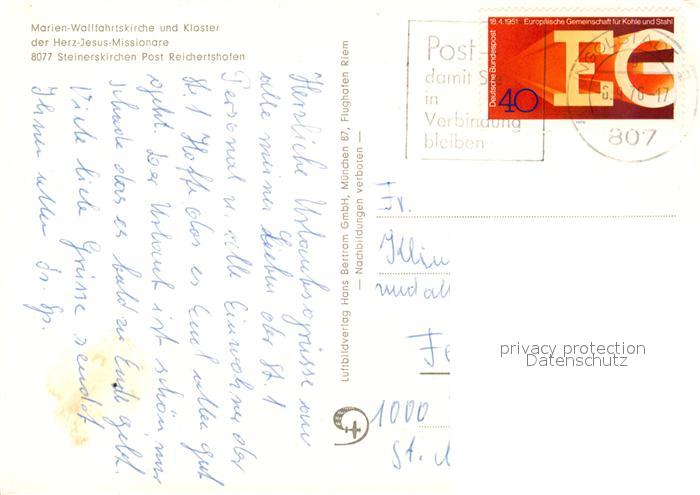 Marien-Wallfahrtskirche und Kloster
der Herz-Jesus-Missionare
8077 Steinerskirchen Post Reichertshofen
Herzliche Urlaubsgrüsse an
alle meine Lieben der St. 1
Personal u. alle Einwohner der
St. 1 Hoffe das es Euch allen gut
geht. Der Urlaub ist schön, nur
schade das es bald zu Ende geht.
Viele liebe Grüsse sendet
Ihnen allen Fr.
Luftbildverlag Hans Bertram GmbH, München 87, Flughafen Riem
— Nachbildungen verboten —
Post-
damit S
in
Verbindung
bleiben
18.4.1951 Europäische Gemeinschaft für Kohle und Stahl
Deutsche Bundespost
40
EG
1976
76-17
807
Fr.
Klin
und all
1000
St.
privacy protection
Datenschutz